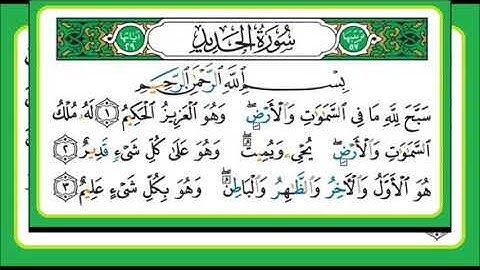 ترتيبها ٥٧ سُورَةُ الْحَدِيدِ آياتها ٢٩
بِسْمِ اللَّهِ الرَّحْمَٰنِ الرَّحِيمِ
سَبَّحَ لِلَّهِ مَا فِى السَّمَٰوَٰتِ وَالْأَرْضِ ۖ وَهُوَ الْعَزِيزُ الْحَكِيمُ ﴿١﴾ لَهُۥ مُلْكُ
السَّمَٰوَٰتِ وَالْأَرْضِ ۖ يُحْىِۦ وَيُمِيتُ ۖ وَهُوَ عَلَىٰ كُلِّ شَىْءٍ قَدِيرٌ ﴿٢﴾
هُوَ الْأَوَّلُ وَالْآخِرُ وَالظَّٰهِرُ وَالْبَاطِنُ ۖ وَهُوَ بِكُلِّ شَىْءٍ عَلِيمٌ ﴿٣﴾